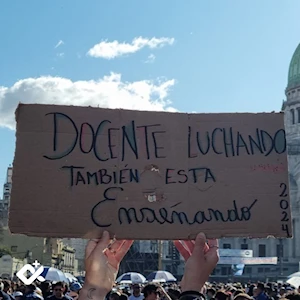 DOCENTE LUCHANDO
TAMBIÉN ESTA
Enseñando
2024